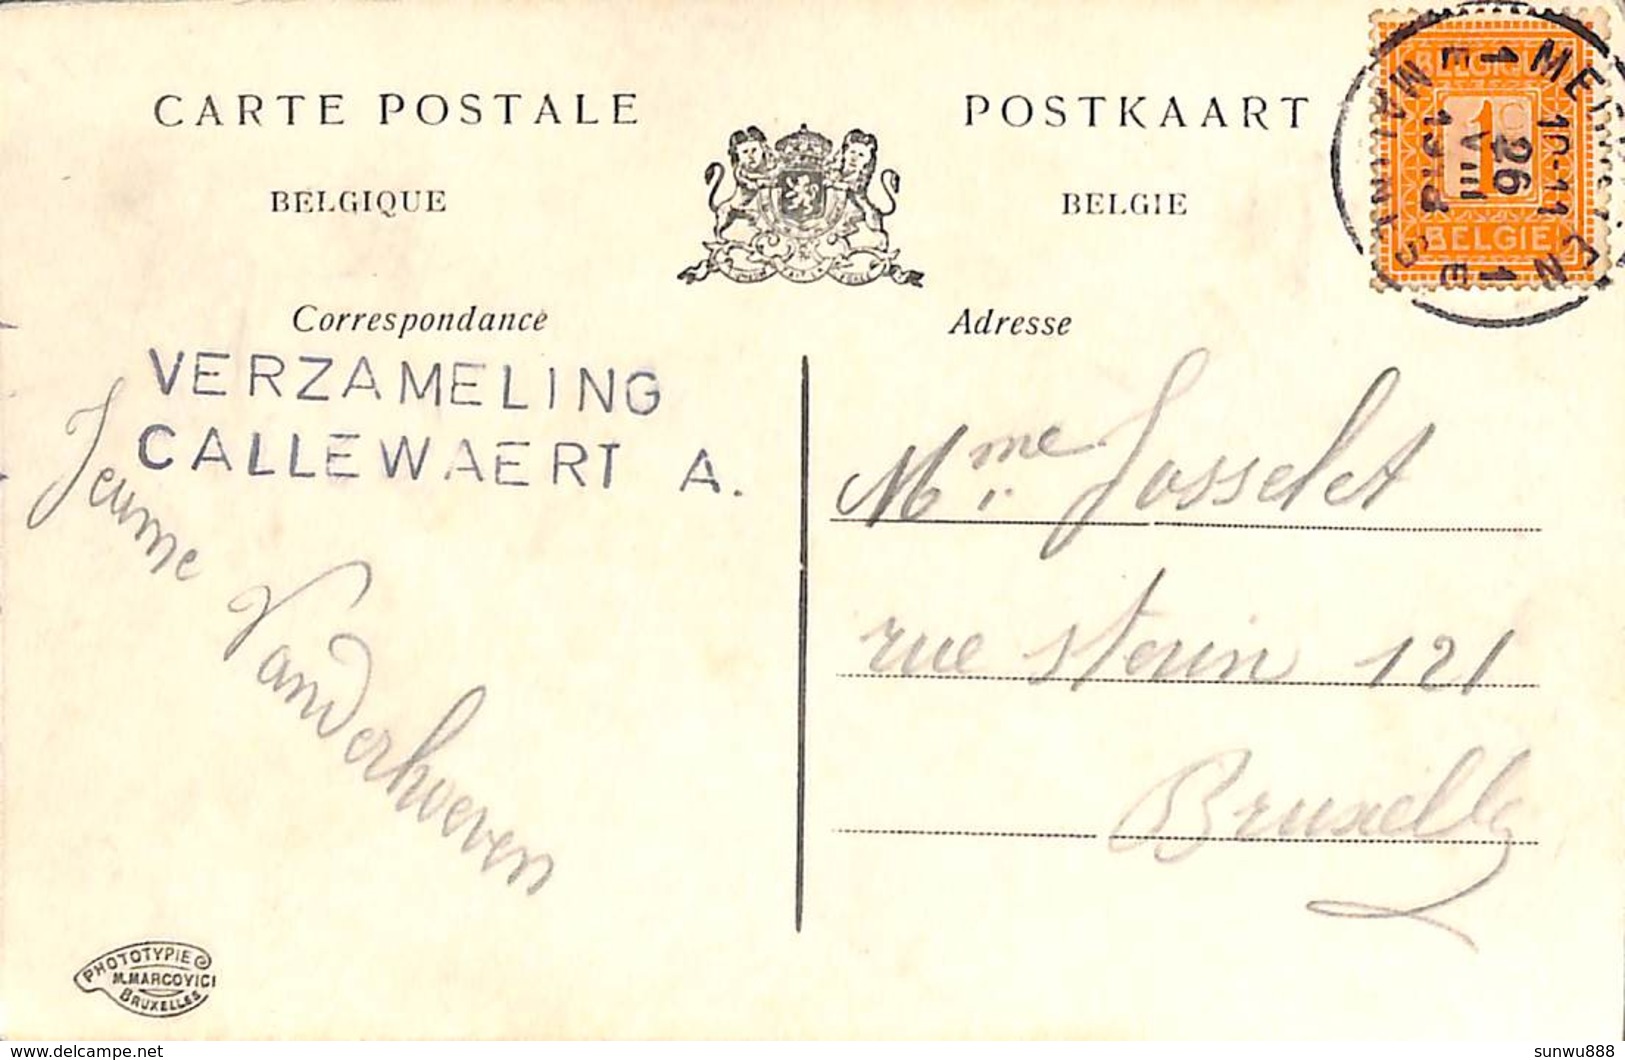 CARTE POSTALE
BELGIQUE
POSTKAART
BELGIE
Correspondance
Adresse
VERZAMELING
CALLEWAERT A.
Vanderhoeven
Mme Josselet
rue 121
Bruxelles
BELGIQUE
1c
BELGIE
10-11
26
VIII
MALINES
PHOTOTYPIE
M.MARCOVICI
BRUXELLES
delcampe.net
sunwu888